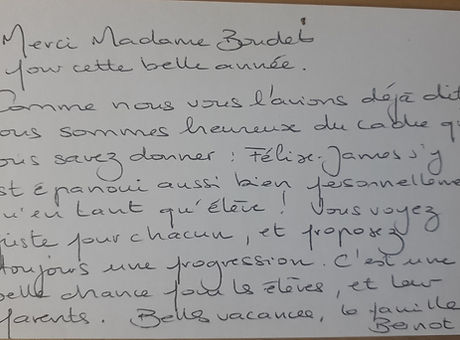 Merci Madame Boudet
pour cette belle année.
Comme nous vous l'avions déjà dit
nous sommes heureux du cadre qu
vous savez donner : Félix-James s'y
est épanoui aussi bien personnelleme
qu'en tant qu'élève ! Vous voyez
juste pour chacun, et proposez
toujours une progression. C'est une
belle chance pour les élèves, et leur
parents. Belles vacances, la famille
Benot